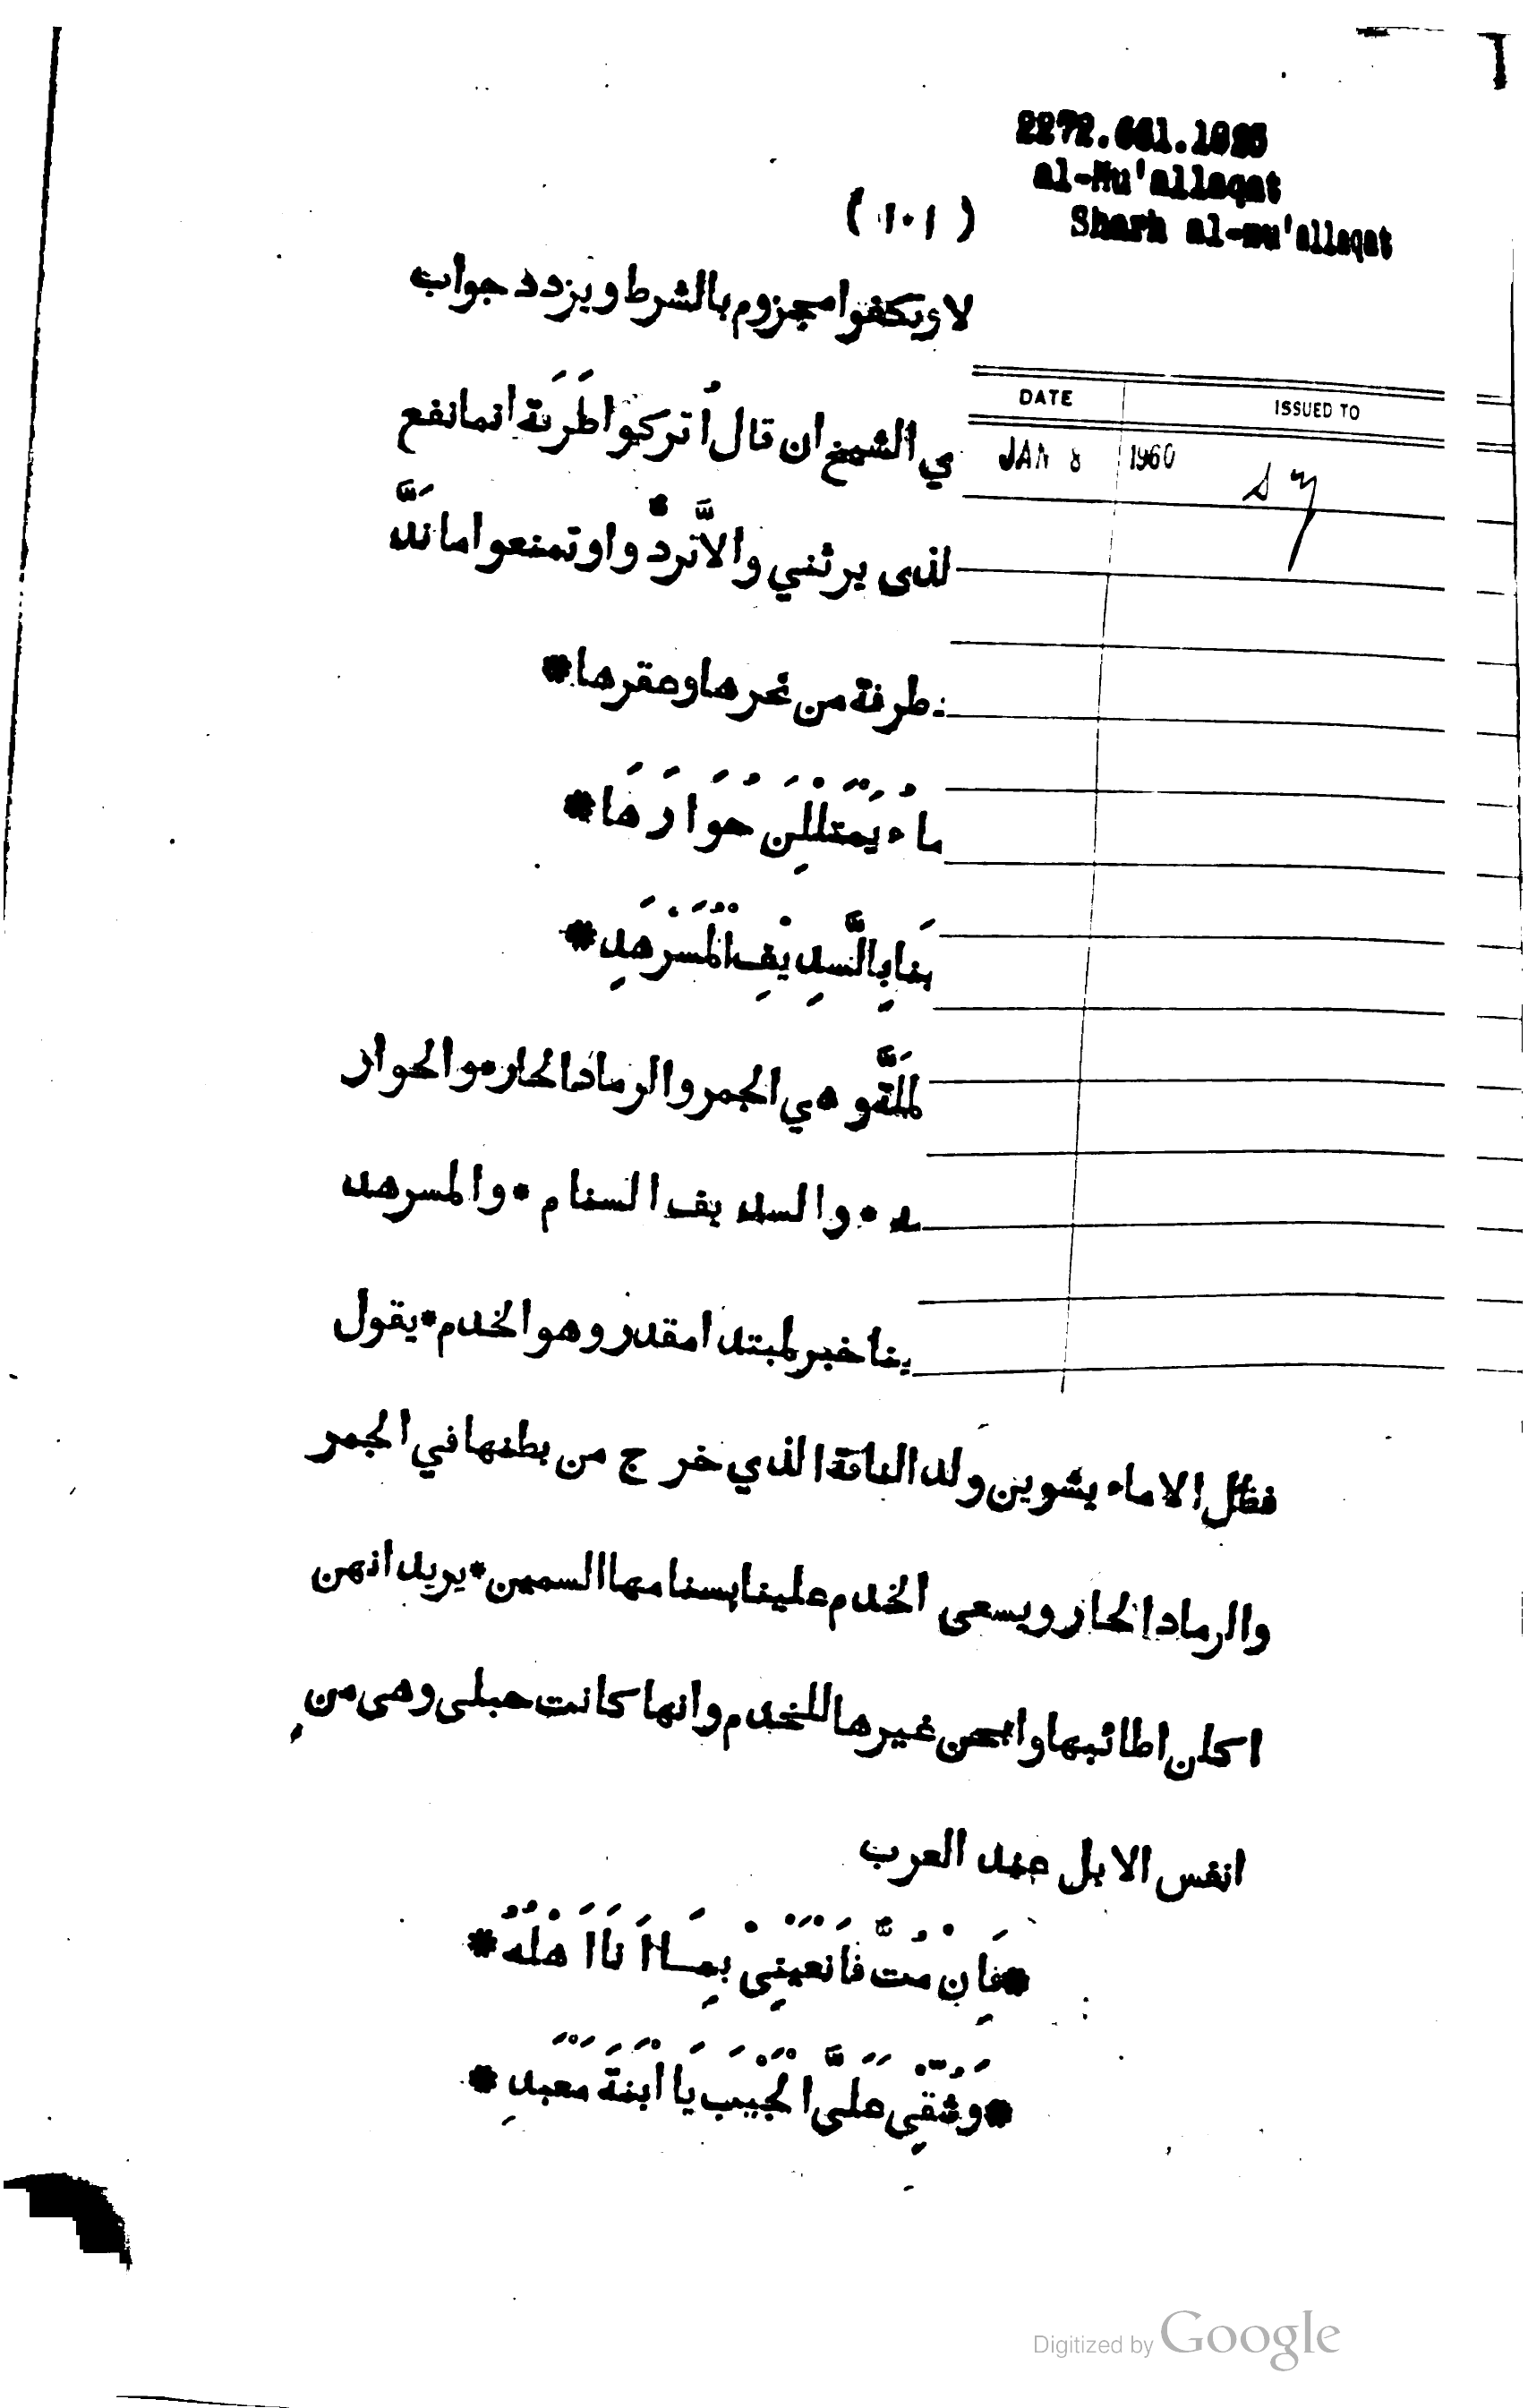 2272.661.1895
al-Mu'allaqat
Sharh al-mu'allaqat
( ١٠١ )
لا وتكفوا مجزوم بالشرط ويزدد جواب
DATE ISSUED TO
ي الشيخ ان قال اُتركوا طَرَفة انما نفع
JAN 8 1960
لذى يرثني والاَّ تردّوا وتمنعوا ما ندَّ
طرفة من نحرها وعقرها *
ماءُ يَمْتَلِلْنَ حُوَارَهَا *
ينَا بِالسَّدِيْفِ الْمُسَرْهَدِ *
لملَّة وهي الجمر والرماد الحار * والحوار
* والسديف السنام * والمسرهد
ينا خبر لمبتدا مقدر وهو الخدم * يقول
فظل الاماء يشوين ولد الناقة الذي خرج من بطنها في الجمر
والرماد الحار ويسعى الخدم علينا بسنامها السمين * يريد انهن
اكلن اطائبها وابحن غيرها للخدم وانها كانت حبلى وهى من
انفس الابل عند العرب
* فَاِنْ مُتُّ فَانْعَيْنِيْ بِمَا اَنَا اَهْلُهُ *
* وَشُقِّيْ عَلَيَّ الْجَيْبَ يَا ابْنَةَ مَعْبَدِ *
Digitized by Google